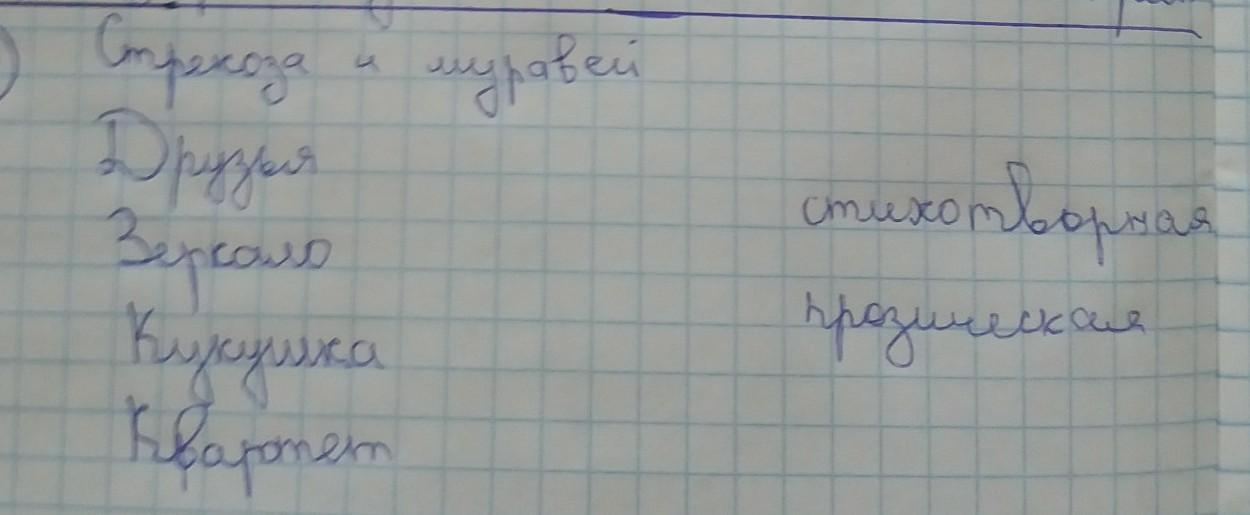 ) Стрекоза и муравей
Друзья
стихотворная
Зеркало
прозическая
Кукушка
Квартет